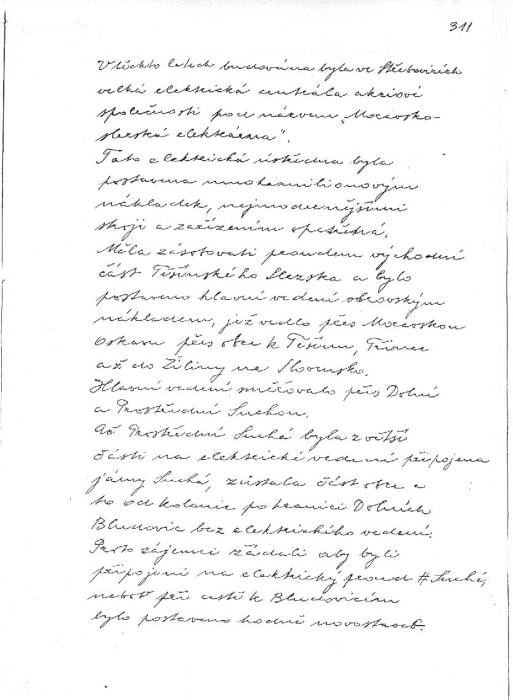 311
V těchto letech budována byla ve Střebovicích
velká elektrická centrála akciové
společnosti pod názvem „Moravsko-
slezská elektrárna".
Tato elektrická ústředna byla
postavena mnohamilionovým
nákladek, nejmodernějšími
stroji a zařízením opatřena.
Měla zásobovati proudem východní
část Těšínského Slezska a bylo
postaveno hlavní vedení obrovským
nákladem, jež vedlo přes Moravskou
Ostravu přes obce k Těšínu, Třinec
a až do Žiliny na Slovensko.
Hlavní vedení směřovalo přes Dolní
a Prostřední Suchou.
Ač Prostřední Suchá byla z větší
části na elektrické vedení připojena
jámy Suchá, zůstala část obce a
to od kolonie po hranici Dolních
Bludovic bez elektrického vedení.
Proto zájemci žádali aby byli
připojeni na elektrický proud # Suché,
neboť při cestě k Bludovicím
bylo postaveno hodně novostaveb.